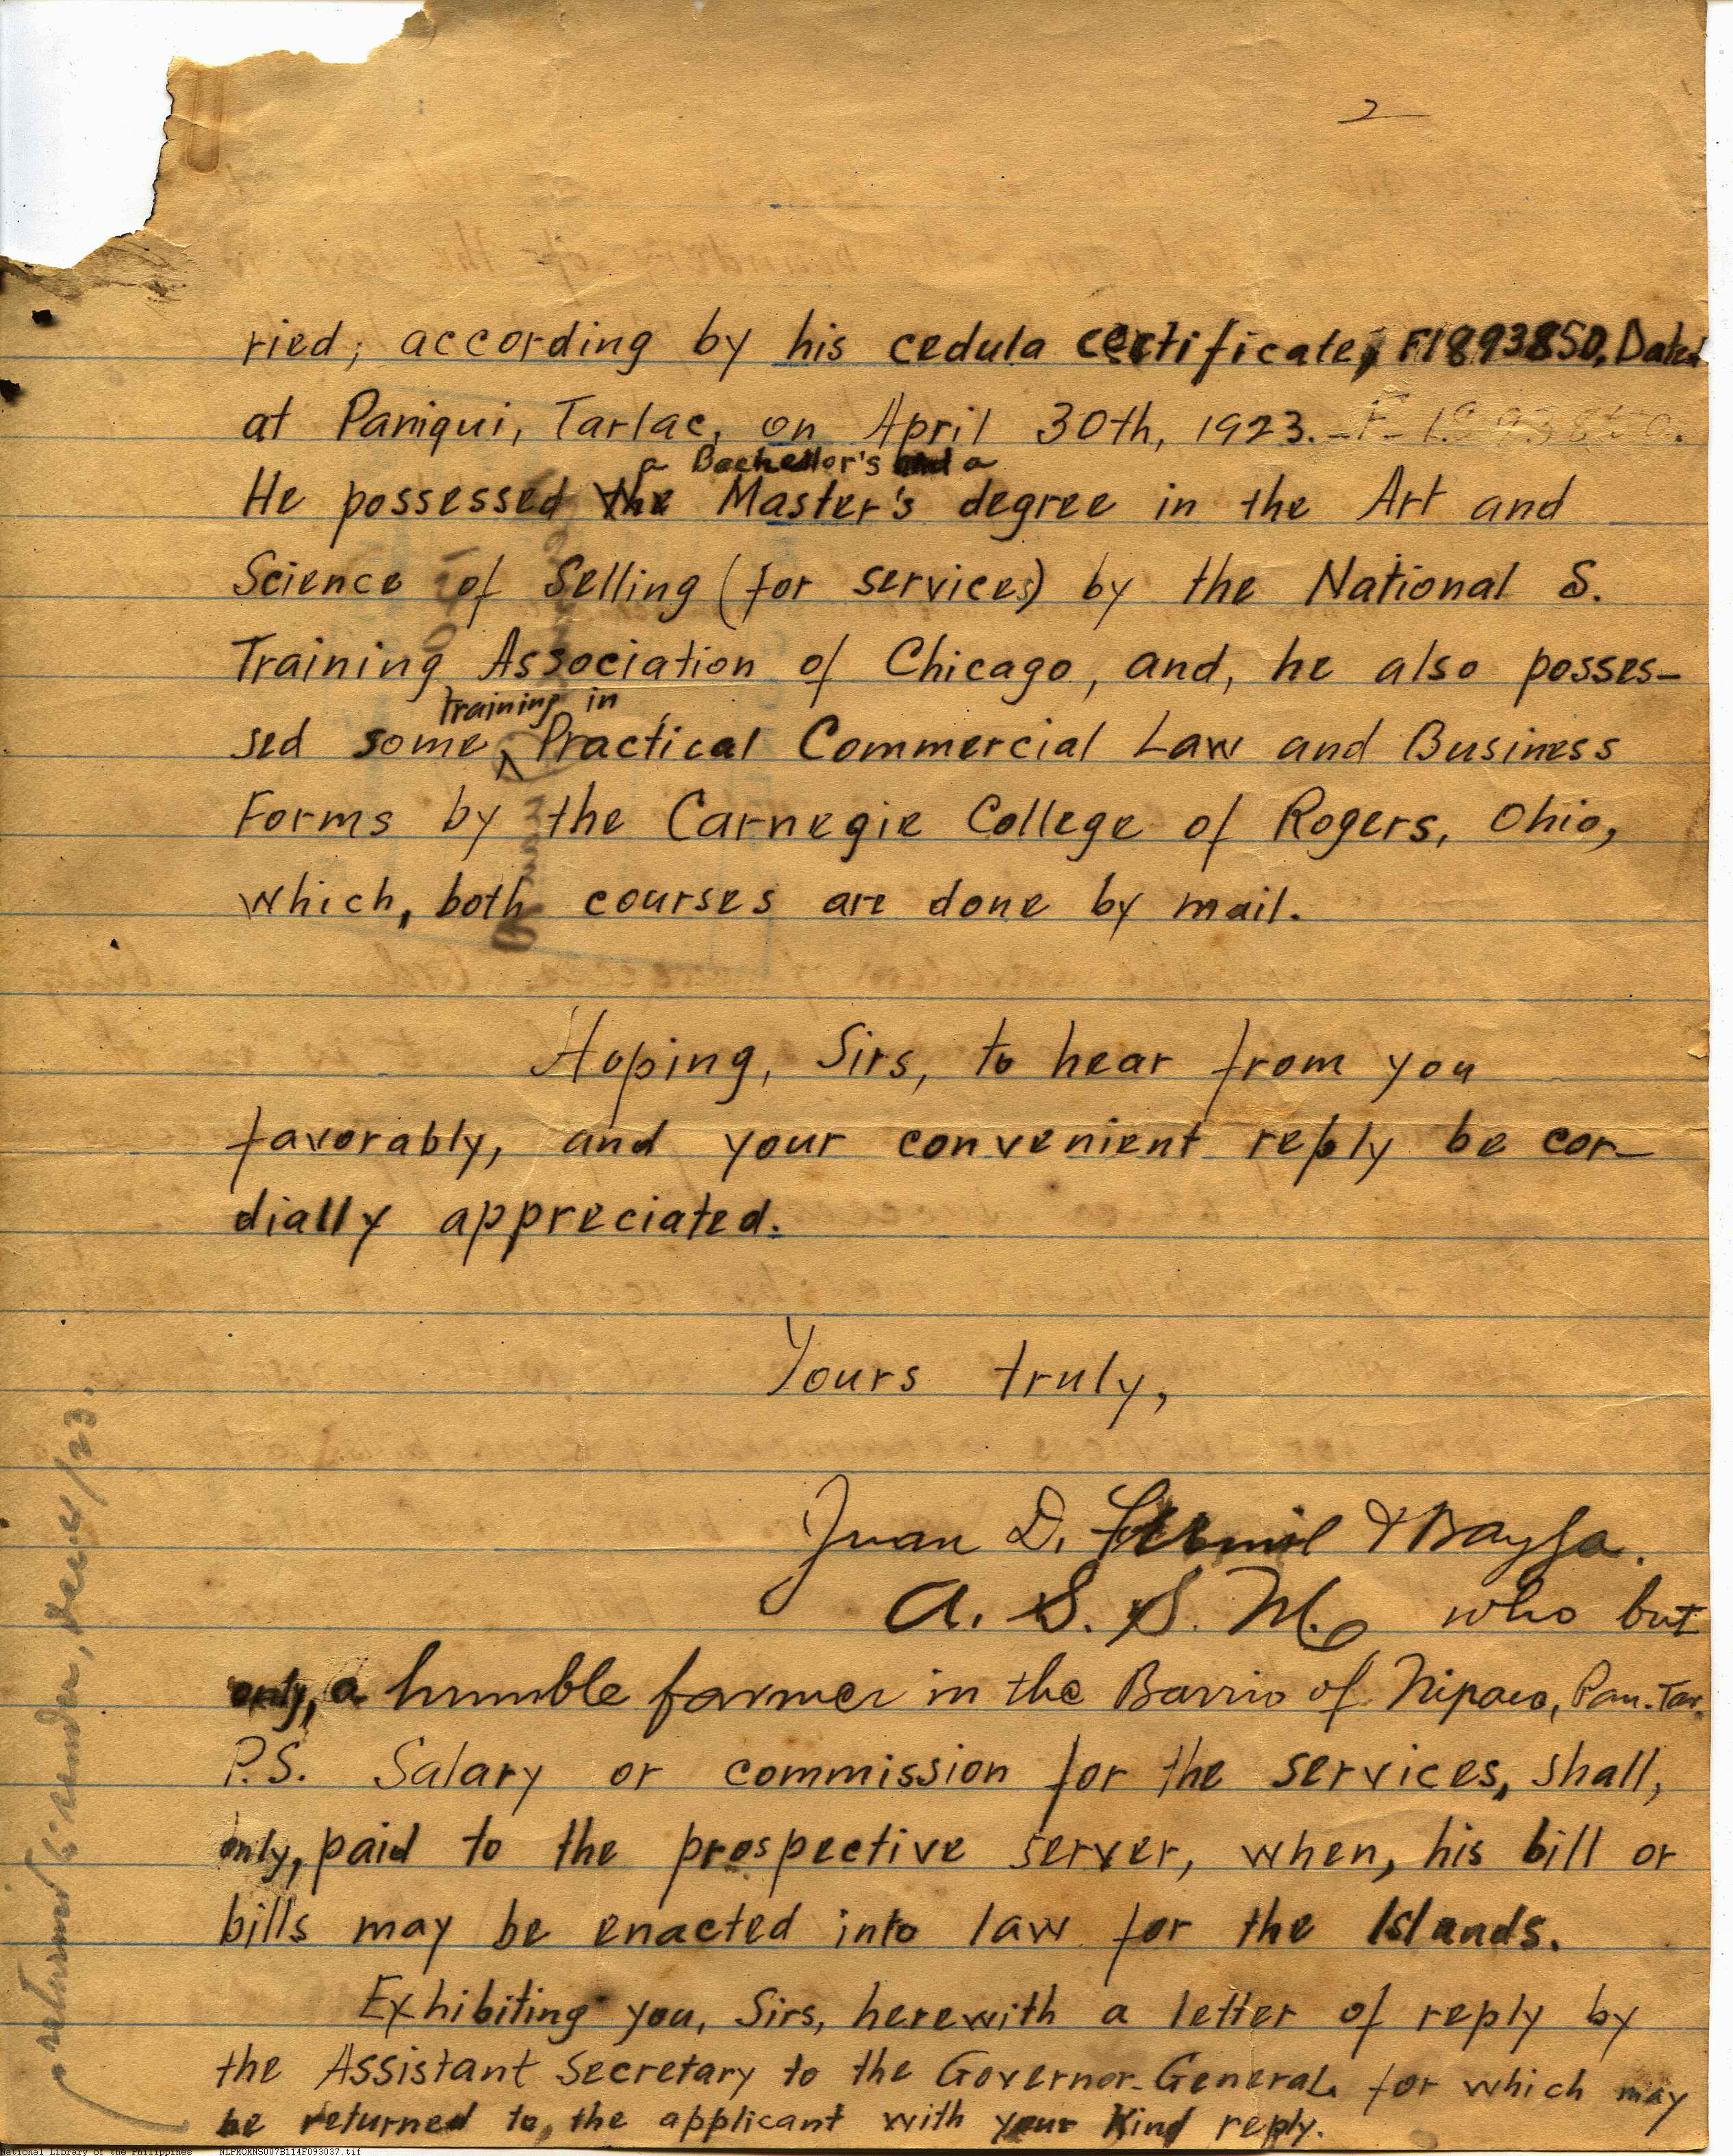 2
ried; according by his cedula certificate, F1893850, Dated
at Paniqui, Tarlac, on April 30th, 1923. F-1893850.
a Bachellor's and a
He possessed the Master's degree in the Art and
Science of Selling (for services) by the National S.
Training Association of Chicago, and, he also posses-
training in
sed some, Practical Commercial Law and Business
Forms by the Carnegie College of Rogers, Ohio,
which, both courses are done by mail.
Hoping, Sirs, to hear from you
favorably, and your convenient reply be cor-
dially appreciated.
Yours truly,
Juan D. Fermil y Baysa.
A. S. S. M. who but
only, a humble farmer in the Barrio of Nipaco, Pan. Tar.
P.S. Salary or commission for the services, shall,
only, paid to the prospective server, when, his bill or
bills may be enacted into law for the Islands.
Exhibiting you, Sirs, herewith a letter of reply by
the Assistant Secretary to the Governor-General, for which may
be returned to, the applicant with your kind reply.
returned to sender, /23.
National Library of the Philippines NLPMQMNS007B114F093037.tif